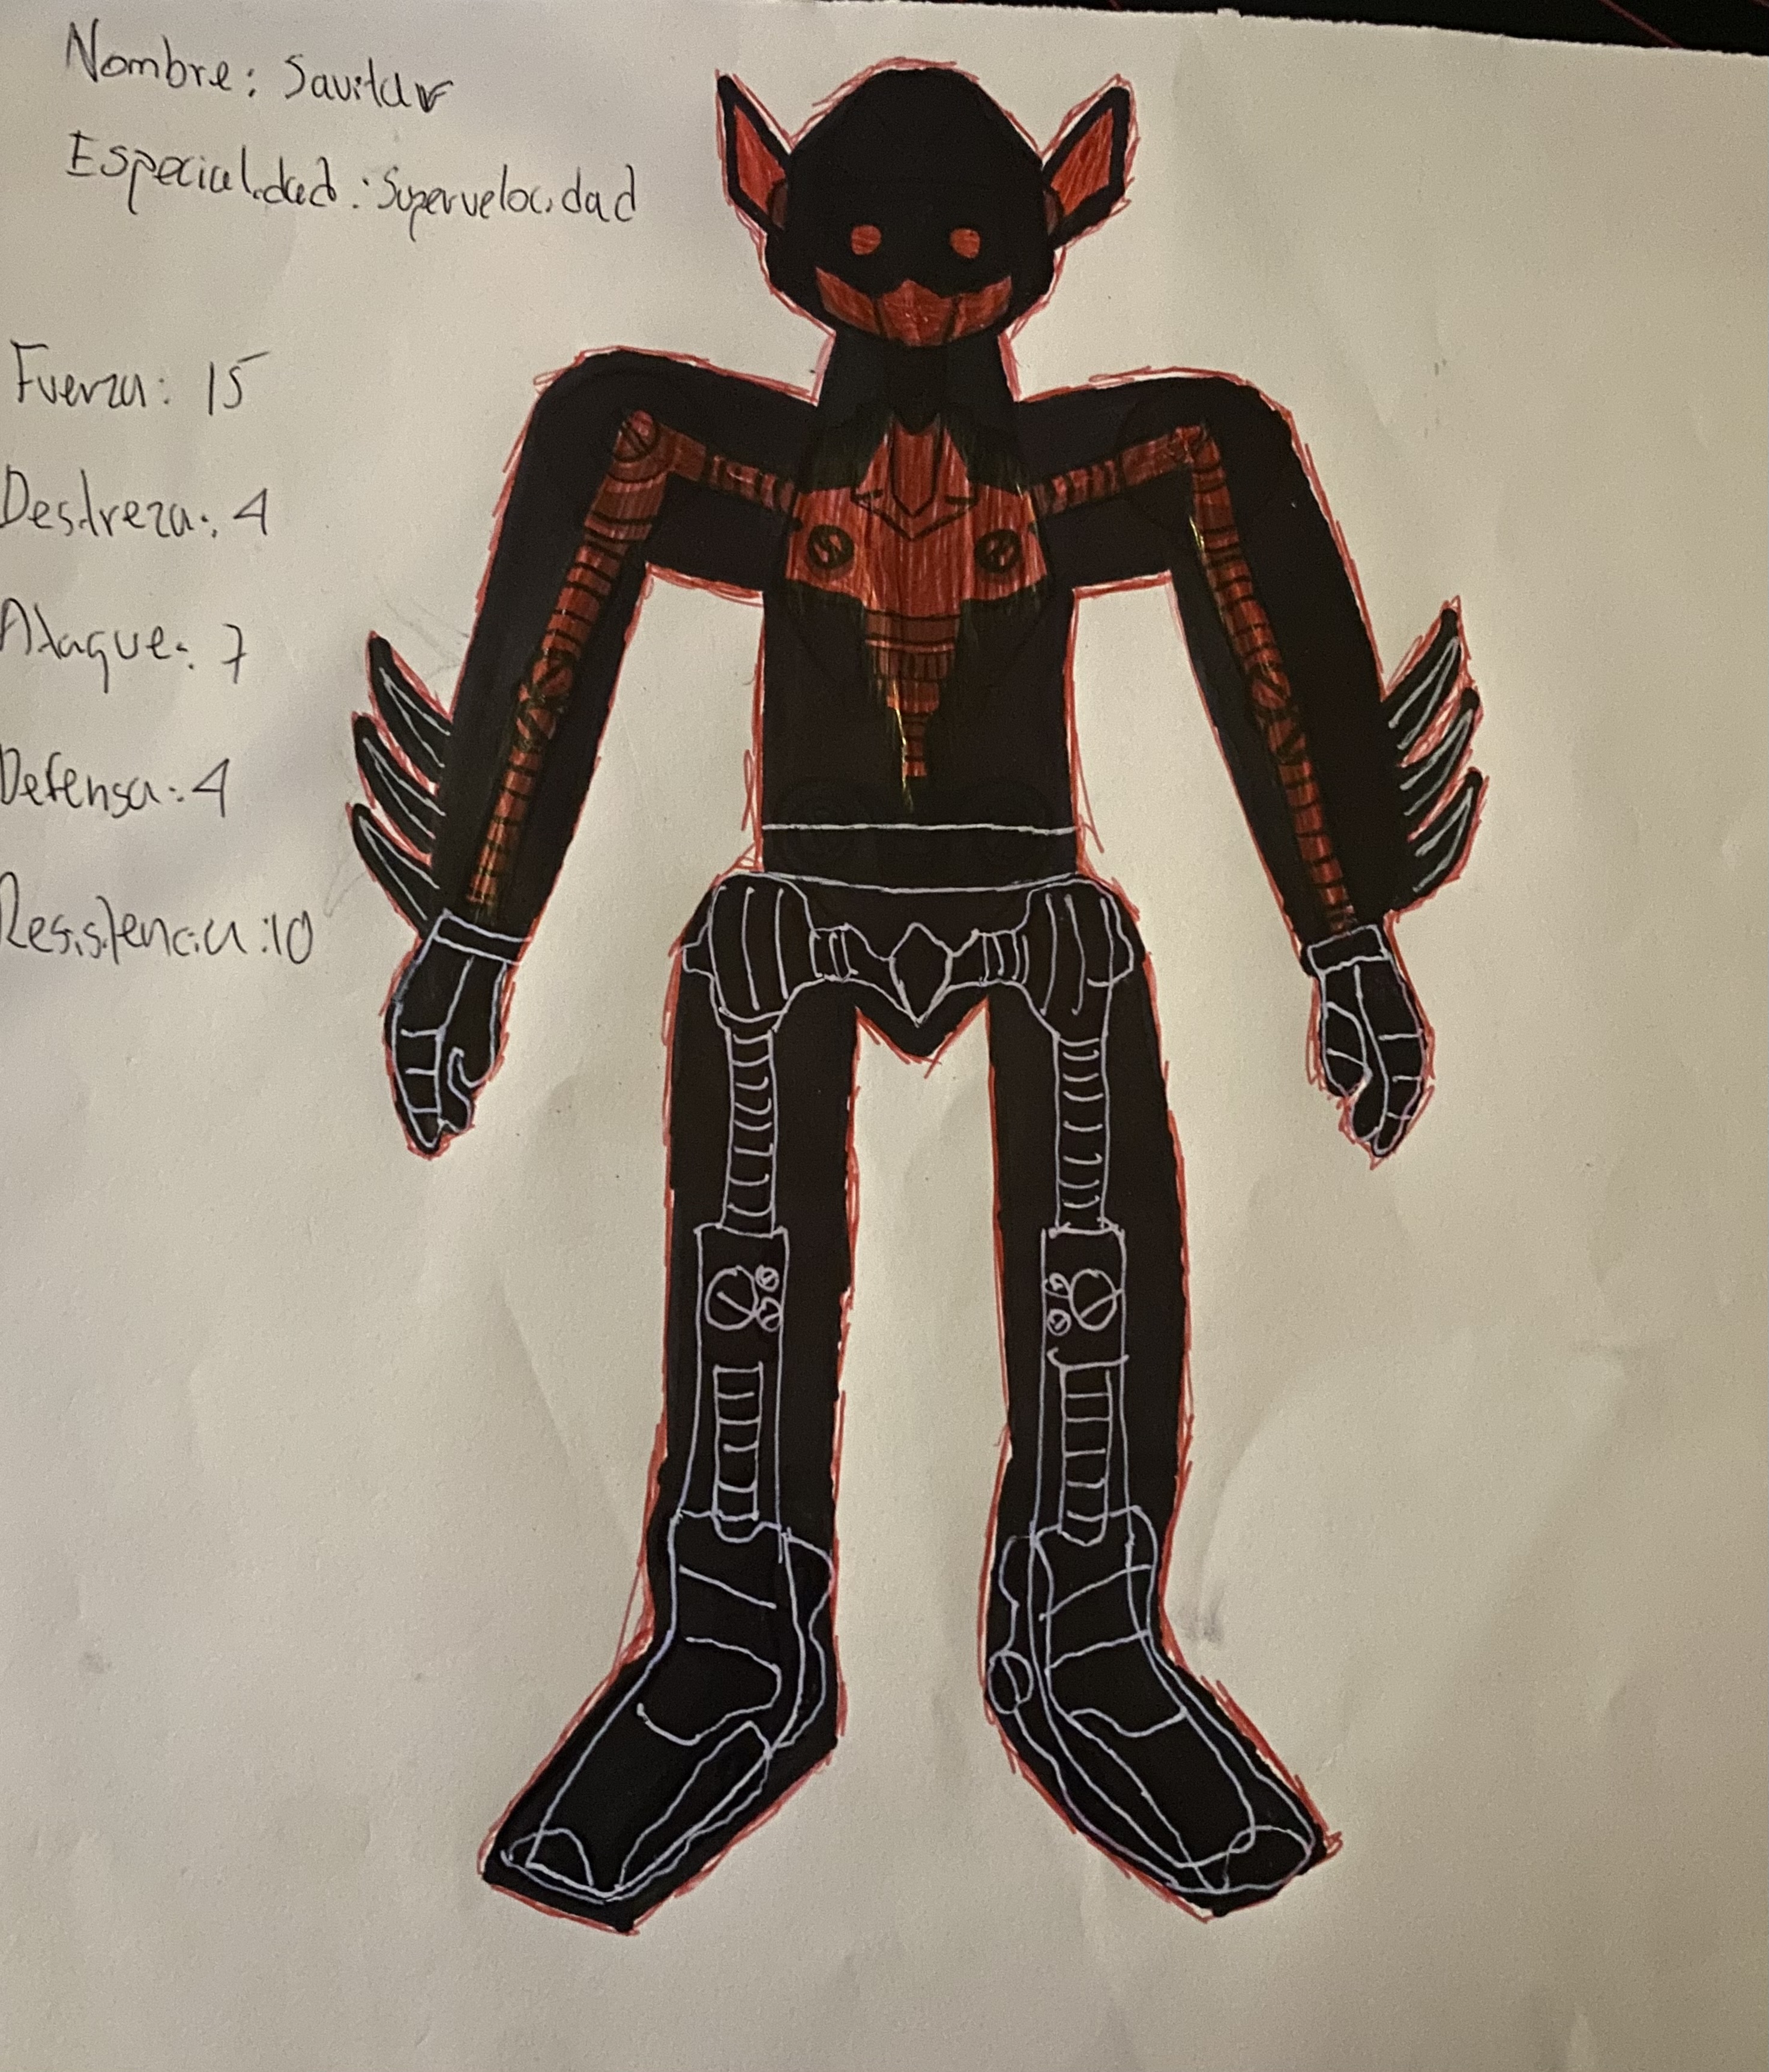 Nombre: Savitar
Especialidad: Supervelocidad
Fuerza: 15
Destreza: 4
Ataque: 7
Defensa: 4
Resistencia: 10